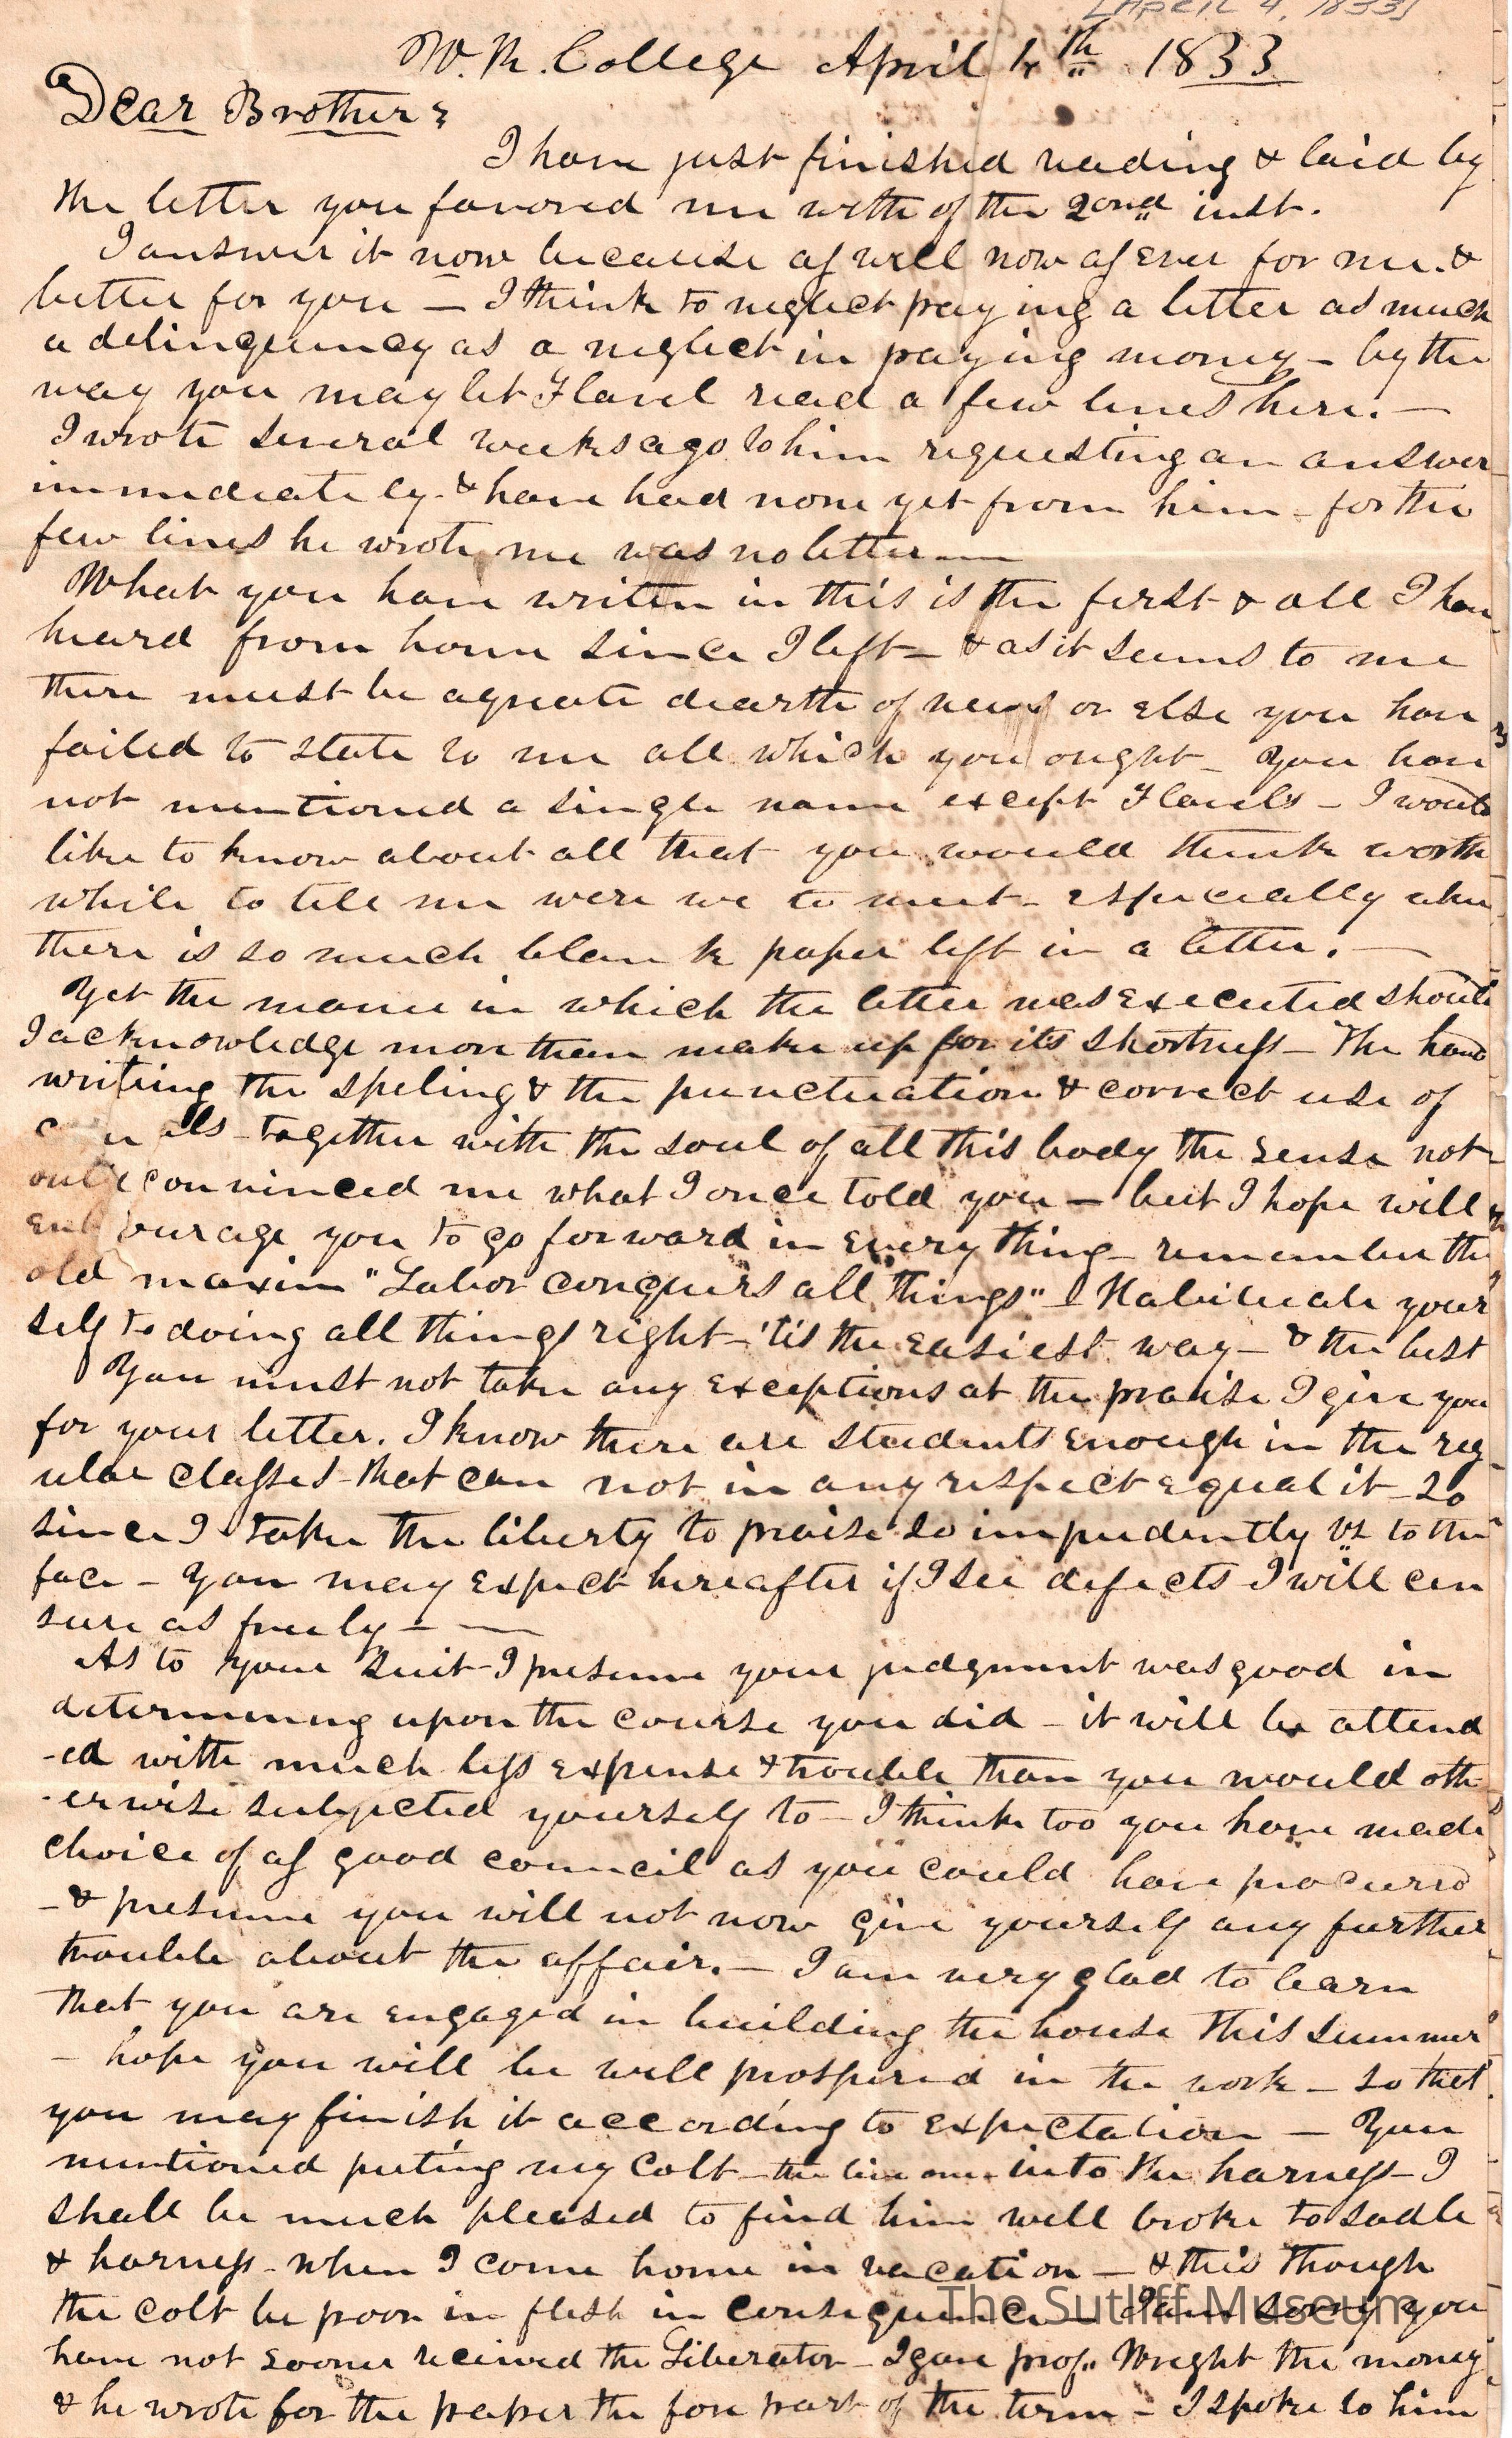 [APRIL 4, 1833]
W. R. College April 4th 1833
Dear Brother;
I have just finished reading & laid by
the letter you favored me with of the 2ond inst.
I answer it now because as well now as ever for me. &
better for you — I think to neglect paying a letter as much
a delinquency as a neglect in paying money — by the
way you may let Flavel read a few lines here. —
I wrote several weeks ago to him requesting an answer
immediately. & have had none yet from him — for the
few lines he wrote me was no letter —
What you have writen in this is the first & all I have
heard from home since I left — & as it seems to me
there must be a greate dearth of news or else you have
failed to state to me all which you ought — You have
not mentioned a single name except Flavels — I would
like to know about all that you would think worth
while to tell me were we to meet — especially when
there is so much blank paper left in a letter. —
Yet the maner in which the letter was executed should
I acknowledge more than make up for its shortness — The hand
writing the speling & the punctuation & correct use of
together with the soul of all this body the sense not
only convinced me what I once told you — but I hope will
encourage you to go forward in every thing — remember the
old maxim "Labor conquers all things" — Habituate your
self to doing all things right — 'tis the easiest way — & the best
You must not take any exceptions at the praise I give you
for your letter. I know there are students enough in the reg-
ular classes that can not in any respect equal it — So
since I take the liberty to praise so impudently to the
face — You may expect hereafter if I see defects I will cen
sure as freely —
As to your suit I presume your judgment was good in
determining upon the course you did — it will be attend
-ed with much less expense & trouble than you would oth
-erwise subjected yourself to — I think too you have made
choice of as good council as you could have procured
— & presume you will not now give yourself any further
trouble about the affair. — I am very glad to learn
that you are engaged in building the house this summer
— hope you will be well prospered in the work — so that
you may finish it according to expectation — You
mentioned puting my colt — the live one — into the harness — I
shall be much pleased to find him well broke to sadle
& harness — when I come home in vacation — & this though
the colt be poor in flesh in consequence — I am sorry you
have not sooner received the Liberator — I gave prof. Wright the money
& he wrote for the paper the fore part of the term — I spoke to him
The Sutliff Museum